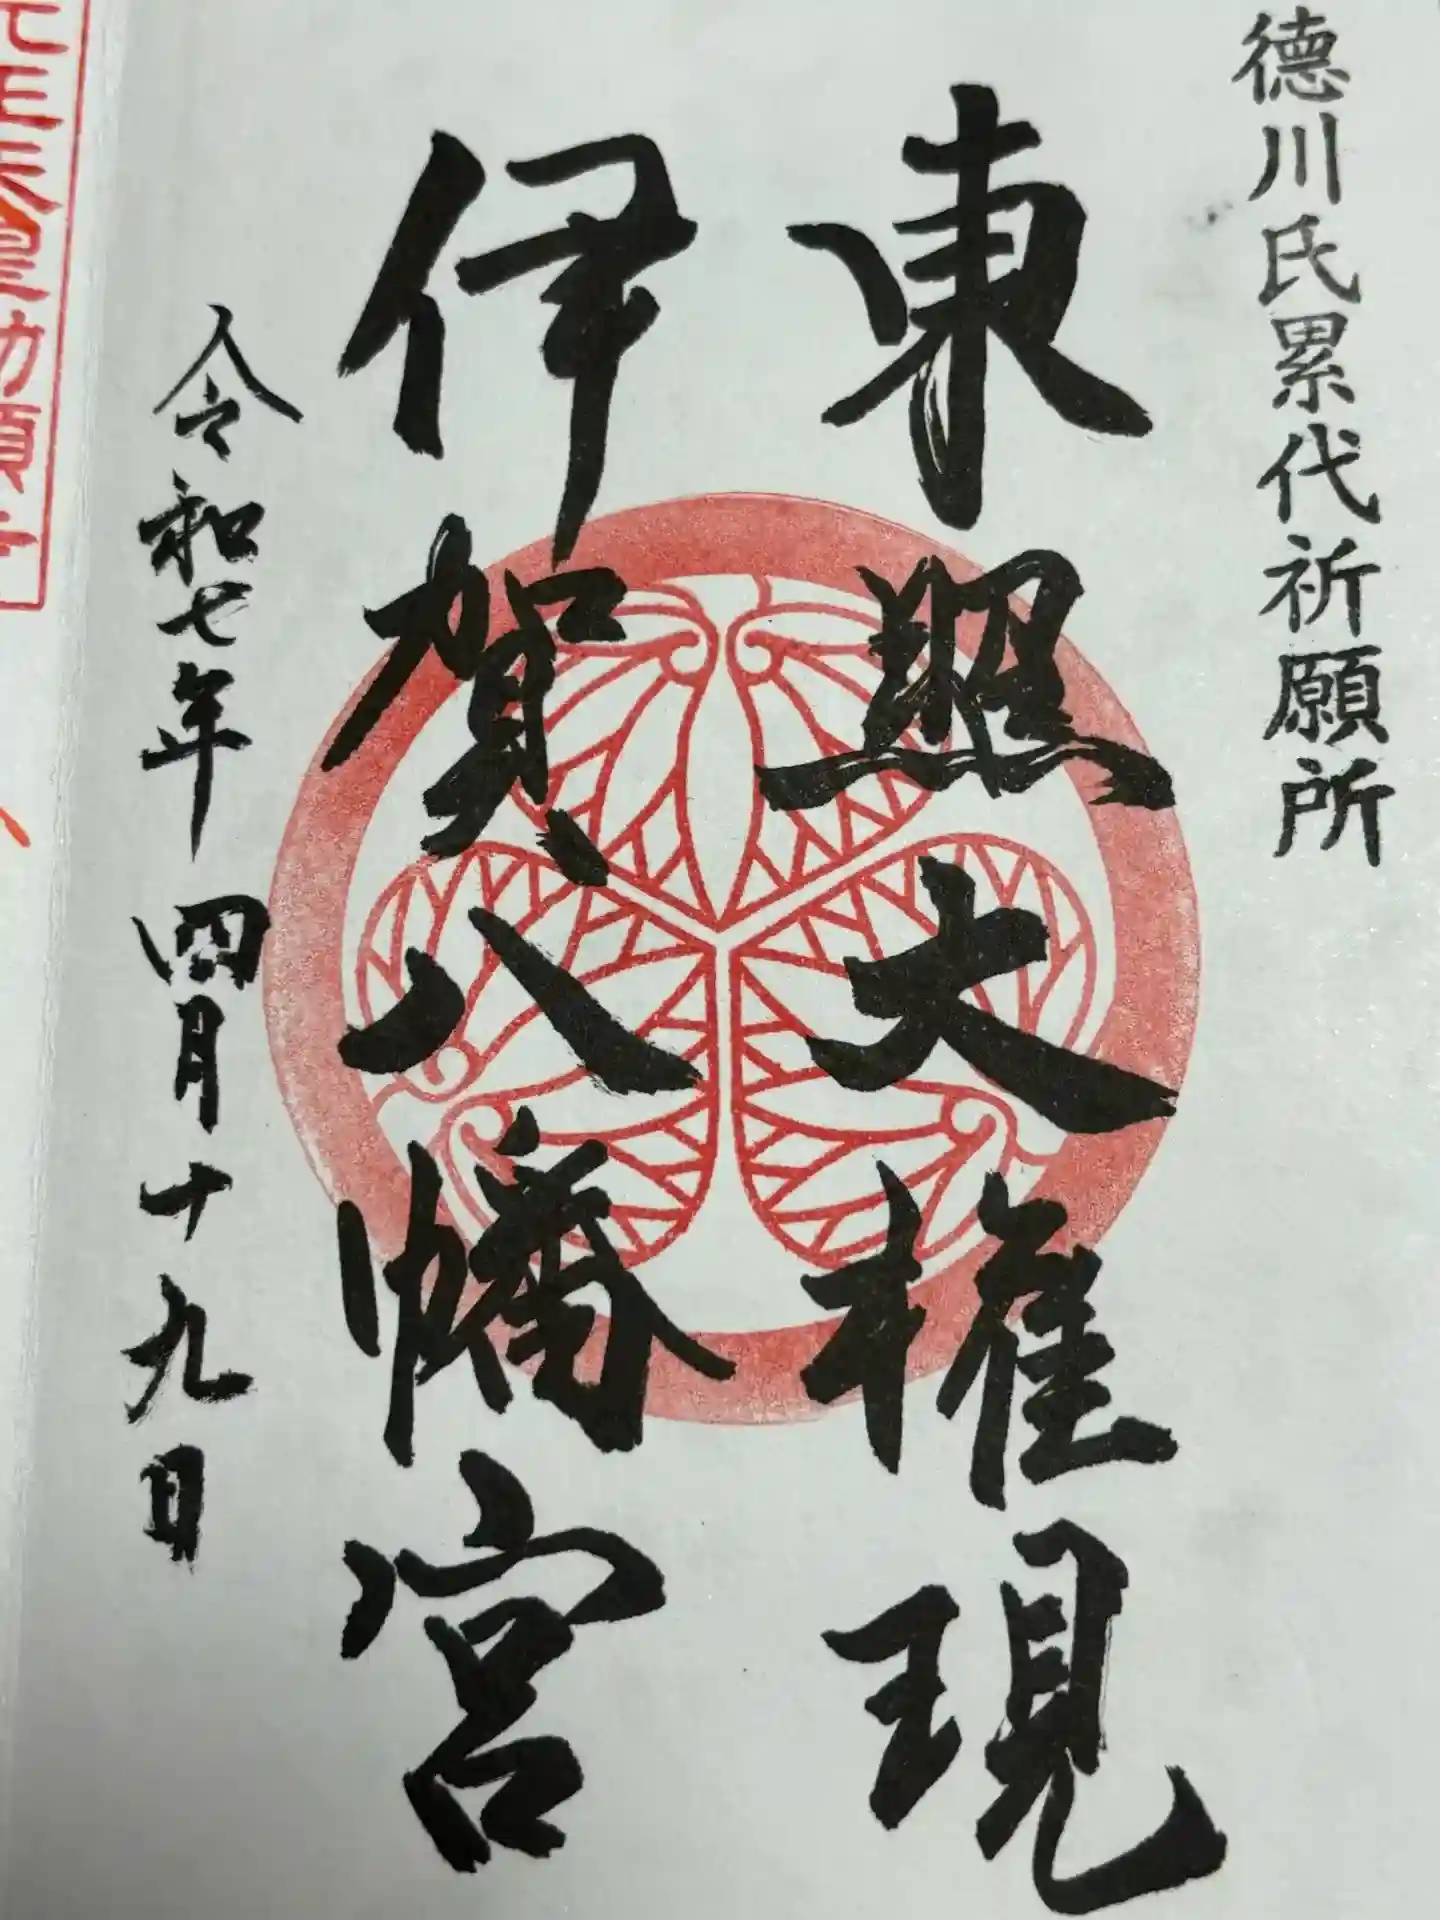 德川氏累代祈願所
東照大権現
伊賀八幡宮
令和七年四月十九日